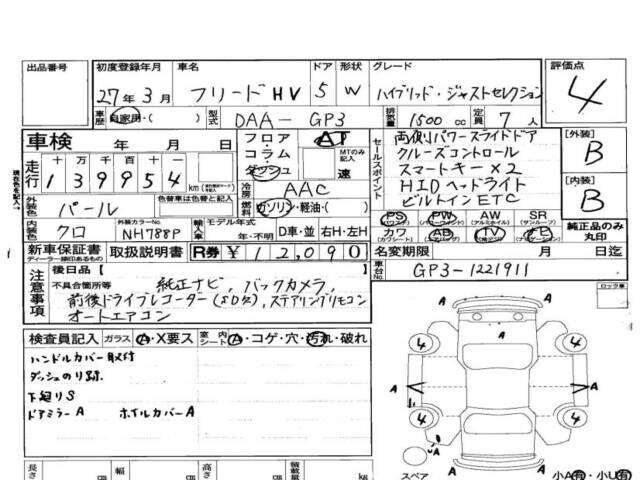 出品番号 初度登録年月 車名 ドア 形状 グレード 評価点
27年3月 フリードHV 5 W ハイブリッド・ジャストセレクション 4
車歴 自家用・( ) 型式 DAA-GP3 排気量 1500cc 定員 7人
車検 年 月 日 フロア・コラム・ダッシュ AT MTのみ記入 速
走行 十 万 千 百 十 一
139954 km
外装色 パール 色替車は色替と記入
内装色 クロ 外装カラーNo. NH788P
冷房 AAC
燃料 ガソリン・軽油・( )
輸入車 モデル年式 年・不明 D車・並 右H・左H
セールスポイント
両側パワースライドドア
クルーズコントロール
スマートキー×2
HIDヘッドライト
ビルトインETC
[外装] B
[内装] B
PS (パワステ) PW (パワーウィンドウ) AW (アルミホイル) SR (サンルーフ)
カワ (カワシート) AB (エアバッグ) TV ナビ
純正品のみ丸印
新車保証書 ディーラー捺印あるもの 取扱説明書 R券 ¥12,090 名変期限 月 日迄
注意事項 後日品〔 〕 車台No. GP3-1221911
不具合箇所等 純正ナビ、バックカメラ、
前後ドライブレコーダー(SD欠)、ステアリングリモコン
オートエアコン
ロック車
検査員記入 ガラス A・X要ス 室内シート A・コゲ・穴・汚れ・破れ
ハンドルカバー取付
ダッシュのり跡
下廻りS
ドアミラーA ホイルカバーA
A
4 4
A A A A
4 4
A
スペア 小A有・小U有
長さ cm 幅 cm 高さ cm 積載量 kg
現在色を記入→